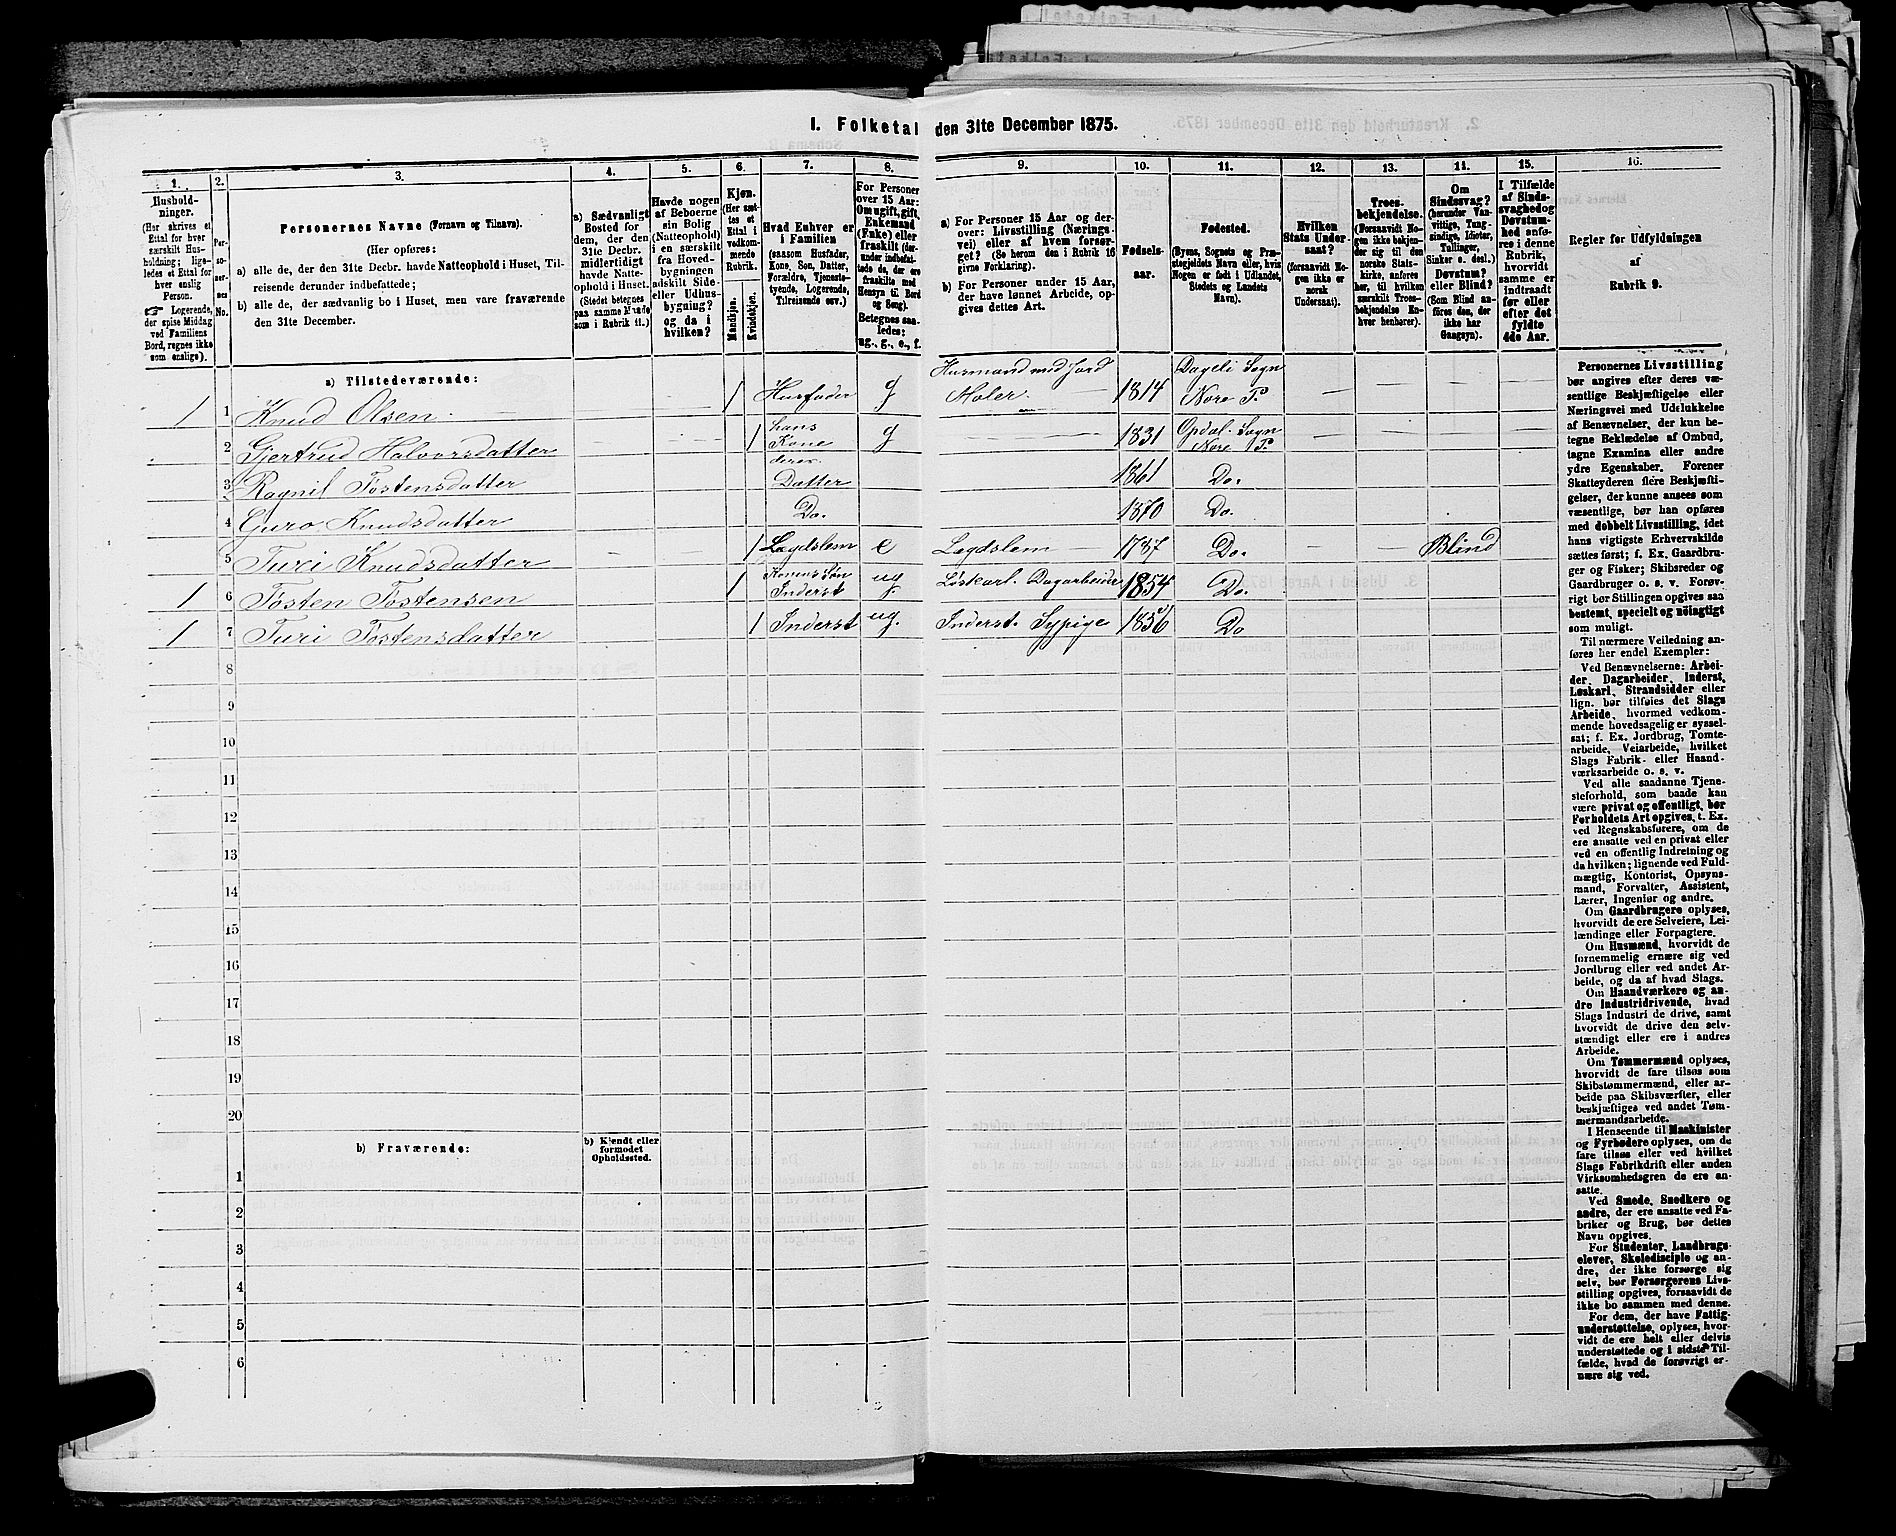 I. Folketal den 31te December 1875.
1.
2.
3.
4.
5.
6.
7.
8.
9.
10.
11.
12.
13.
14.
15.
16.
Husholdninger.
(Her skrives et
Ettal for hver
særskilt Husholdning;
ligeledes et Ettal for
hver enslig
Person.
☞ Logerende,
der spise Middag
ved Familiens
Bord, regnes ikke
som enslige).
Personernes No.
Personernes Navne (Fornavn og Tilnavn).
(Her opføres:
a) alle de, der den 31te Decbr. havde Natteophold i Huset, Tilreisende derunder indbefattede;
b) alle de, der sædvanlig bo i Huset, men vare fraværende
den 31te December.
a) Sædvanligt
Bosted for
dem, der den
31te Decbr.
midlertidigt
havde Natteophold i Huset.
(Stedet betegnes
paa samme Maade
som i Rubrik 11.)
Havde nogen
af Beboerne
sin Bolig
(Natteophold)
i en særskilt
fra Hovedbygningen
adskilt Sideeller Udhusbygning?
og da i
hvilken?
Kjøn.
(Her sættes et
Ettal i
vedkommende
Rubrik.
Mandkjøn.
Kvindekjøn.
Hvad Enhver er
i Familien
(saasom Husfader,
Kone, Søn, Datter,
Forældre, Tjenestetyende, Logerende,
Tilreisende osv.)
For Personer
over 15 Aar:
Om ugift, gift,
Enkemand
(Enke) eller
fraskilt (derunder indbefattede de, der ere
fraskilte med
Hensyn til Bord
og Seng).
Betegnes saaledes:
ug., g., e., f.
a) For Personer 15 Aar og derover: Livsstilling (Næringsvei) eller af hvem forsørget? (Se herom den i Rubrik 16
givne Forklaring).
b) For Personer under 15 Aar,
der have lønnet Arbeide, opgives dettes Art.
Fødselsaar.
Fødested.
(Byens, Sognets og Præstegjeldets Navn eller, hvis
Nogen er født i Udlandet,
Stedets og Landets
Navn).
Hvilken
Stats Undersaat?
(forsaavidt Nogen ikke er
norsk
Undersaat).
Troesbekjendelse.
(Forsaavidt Nogen ikke bekjender sig til den
norske Statskirke, anføres
her, til hvilken
særskilt Troesbekjendelse Enhver henhører).
Om
Sindssvag?
(herunder Vanvittige, Tungsindige, Idioter,
Tullinger,
Sinker o. desl.).
Døvstum?
eller Blind?
(Som Blind anføres den, der
ikke har
Gangsyn).
I Tilfælde
af Sindssvaghed og
Døvstumhed anføres i denne
Rubrik,
hvorvidt
samme er
indtraadt
før eller
efter det
fyldte
4de Aar.
Regler for Udfyldningen
af
Rubrik 9.
a) Tilstedeværende:
1 1 Knud Olsen 1 Husfader g Husmand med Jord Maler 1814 Dagali Sogn Nore P.
2 Gjertrud Halvorsdatter 1 hans Kone g 1831 Opdal Sogn Nore P.
3 Ragnil Tostensdatter deres Datter 1861 Do.
4 Guro Knudsdatter Do. 1870 Do.
5 Turi Knudsdatter 1 Lægdslem e Lægdslem 1787 Do. Blind
1 6 Tosten Tostensen 1 Konens Søn Inderst ug. Løskarl. Dagarbeider 1854 Do.
1 7 Turi Tostensdatter 1 Inderst ug. Inderst. Sypige 1856 Do
8
9
10
11
12
13
14
15
16
17
18
19
20
b) Fraværende:
b) Kjendt eller
formodet
Opholdssted.
1
2
3
4
5
6
Personernes Livsstilling
bør angives efter deres væsentlige Beskjæftigelse eller
Næringsvei med Udelukkelse
af Benævnelser, der kun betegne Beklædelse af Ombud,
tagne Examina eller andre
ydre Egenskaber. Forener
Skatteyderen flere Beskjæftigelser, der kunne ansees som
væsentlige, bør han opføres
med dobbelt Livsstilling, idet
hans vigtigste Erhvervskilde
sættes først; f. Ex. Gaardbruger og Fisker; Skibsreder og
Gaardbruger o. s. v. Forøvrigt bør Stillingen opgives saa
bestemt, specielt og nøiagtigt
som muligt.
Til nærmere Veiledning anføres her endel Exempler:
Ved Benævnelserne: Arbeider, Dagarbeider, Inderst,
Løskarl, Strandsidder eller
lign. bør tilføies det Slags
Arbeide, hvormed vedkommende hovedsagelig er sysselsat; f. Ex. Jordbrug, Tomtearbeide, Veiarbeide, hvilket
Slags Fabrik- eller Haandværksarbeide o. s. v.
Ved alle saadanne Tjenesteforhold, som baade kan
være privat og offentligt, bør
Forholdets Art opgives, t. Ex.
ved Regnskabsførere, om de
ere ansatte ved en privat eller
ved en offentlig Indretning og
da hvilken; lignende ved Fuldmægtig, Kontorist, Opsynsmand, Forvalter, Assistent,
Lærer, Ingeniør og andre.
Om Gaardbrugere oplyses,
hvorvidt de ere Selveiere, Leilændinge eller Forpagtere.
Om Husmænd, hvorvidt de
fornemmelig ernære sig ved
Jordbrug eller ved andet Arbeide, og da af hvad Slags.
Om Haandværkere og andre Industridrivende, hvad
Slags Industri de drive, samt
hvorvidt de drive den selvstændigt eller ere i andres
Arbeide.
Om Tømmermænd oplyses,
hvorvidt de fare tilsøs som
Skibstømmermænd, eller arbeide paa Skibsværfter, eller
beskjæftiges ved andet Tømmermandsarbeide.
I Henseende til Maskinister
og Fyrbødere oplyses, om de
fare tilsøs eller ved hvilket
Slags Fabrikdrift eller anden
Virksomhedsgren de ere ansatte.
Ved Smede, Snedkere og
andre, der ere ansatte ved Fabriker og Brug, bør dettes
Navn opgives.
For Studenter, Landbrugselever, Skoledisciple og andre, der ikke forsørge sig
selv, bør Forsørgerens Livsstilling opgives, forsaavidt de
ikke bo sammen med denne.
For dem, der have Fattigunderstøttelse, oplyses, hvorvidt de ere helt eller delvis
understøttede og i sidste Tilfælde, hvad de forøvrigt ernære sig ved.